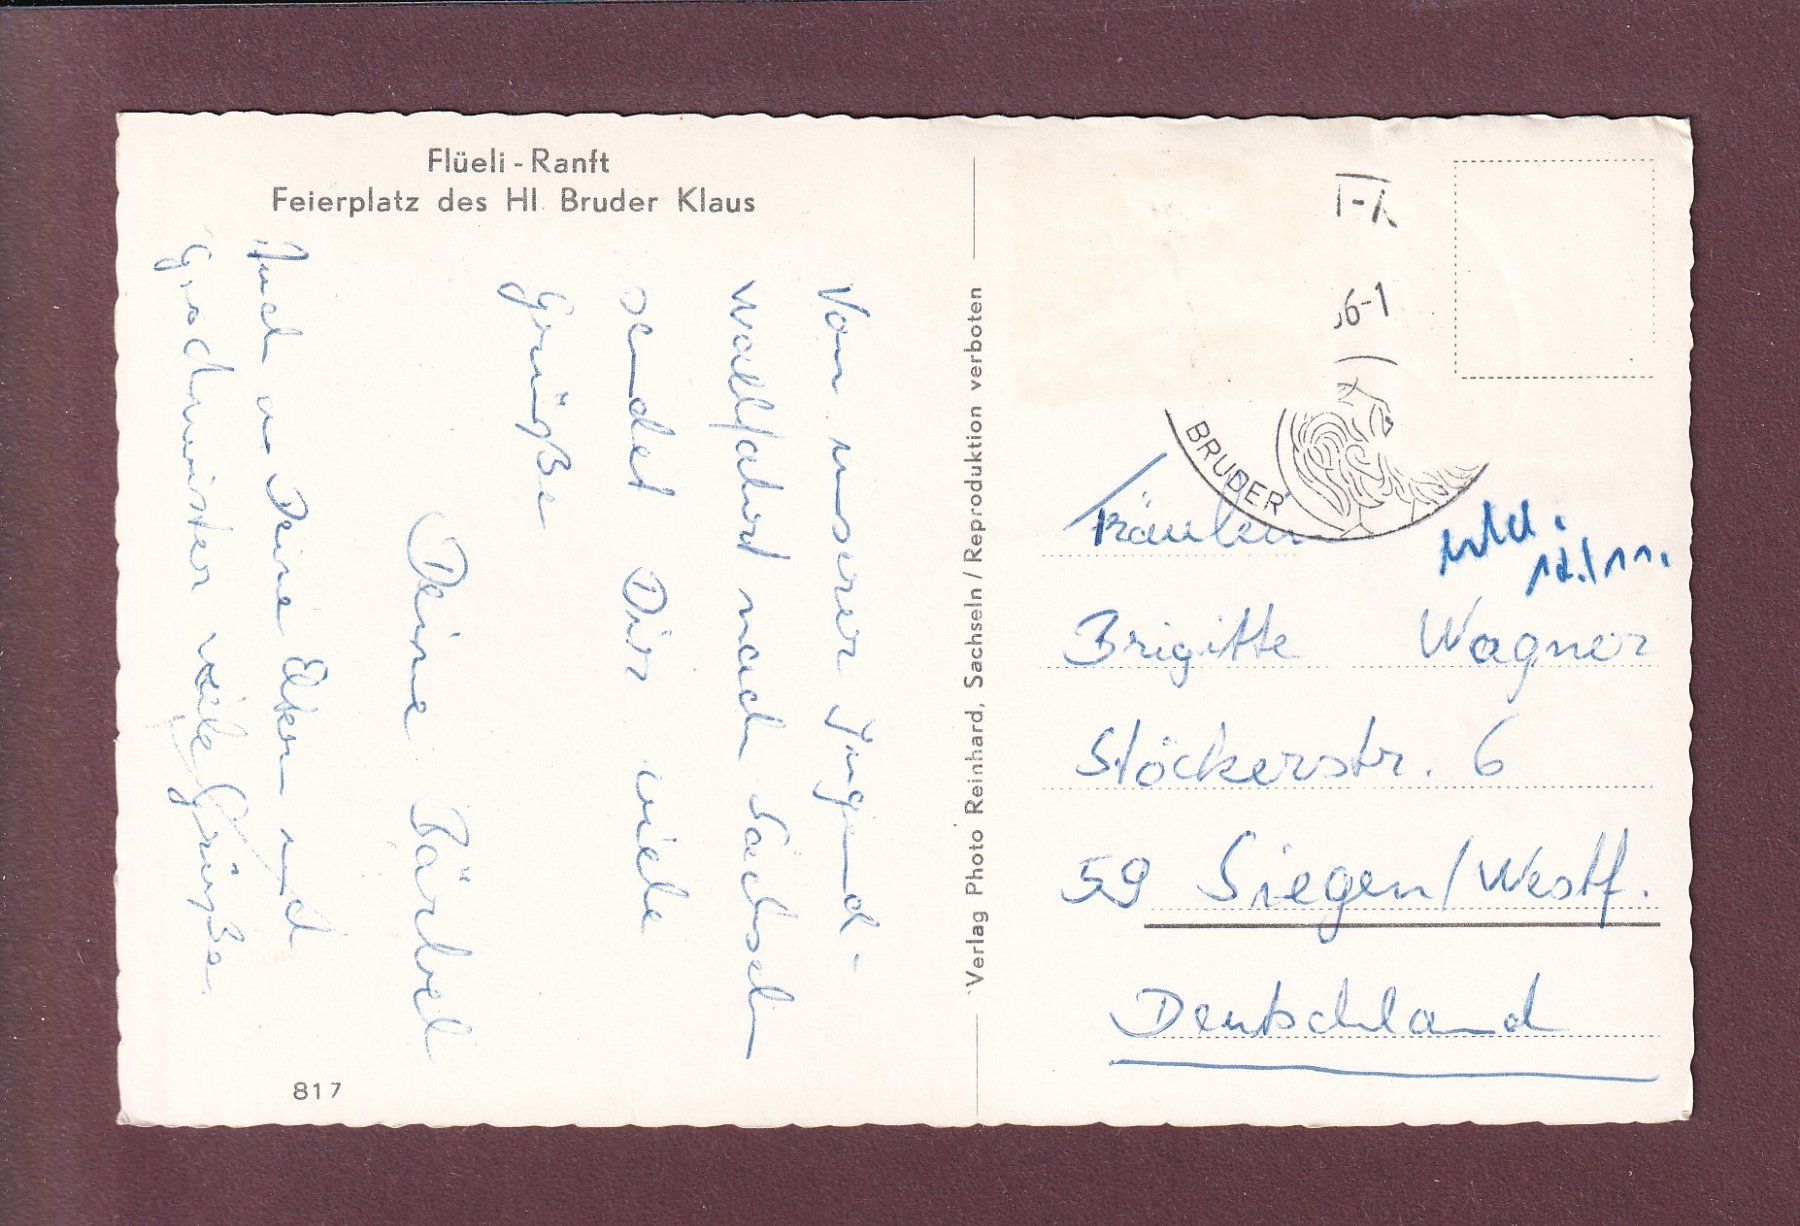 Flüeli - Ranft
Feierplatz des Hl. Bruder Klaus
Von unserer Jugend-
wallfahrt nach Sachseln
sendet Dir viele
Grüße
Deine Bärbel
Auch an Deine Eltern und
Geschwister viele Grüße
817
Verlag Photo Reinhard, Sachseln / Reproduktion verboten
6-1
BRUDER
Fräulein
12./11.
Brigitte Wagner
Stöckerstr. 6
59 Siegen/Westf.
Deutschland